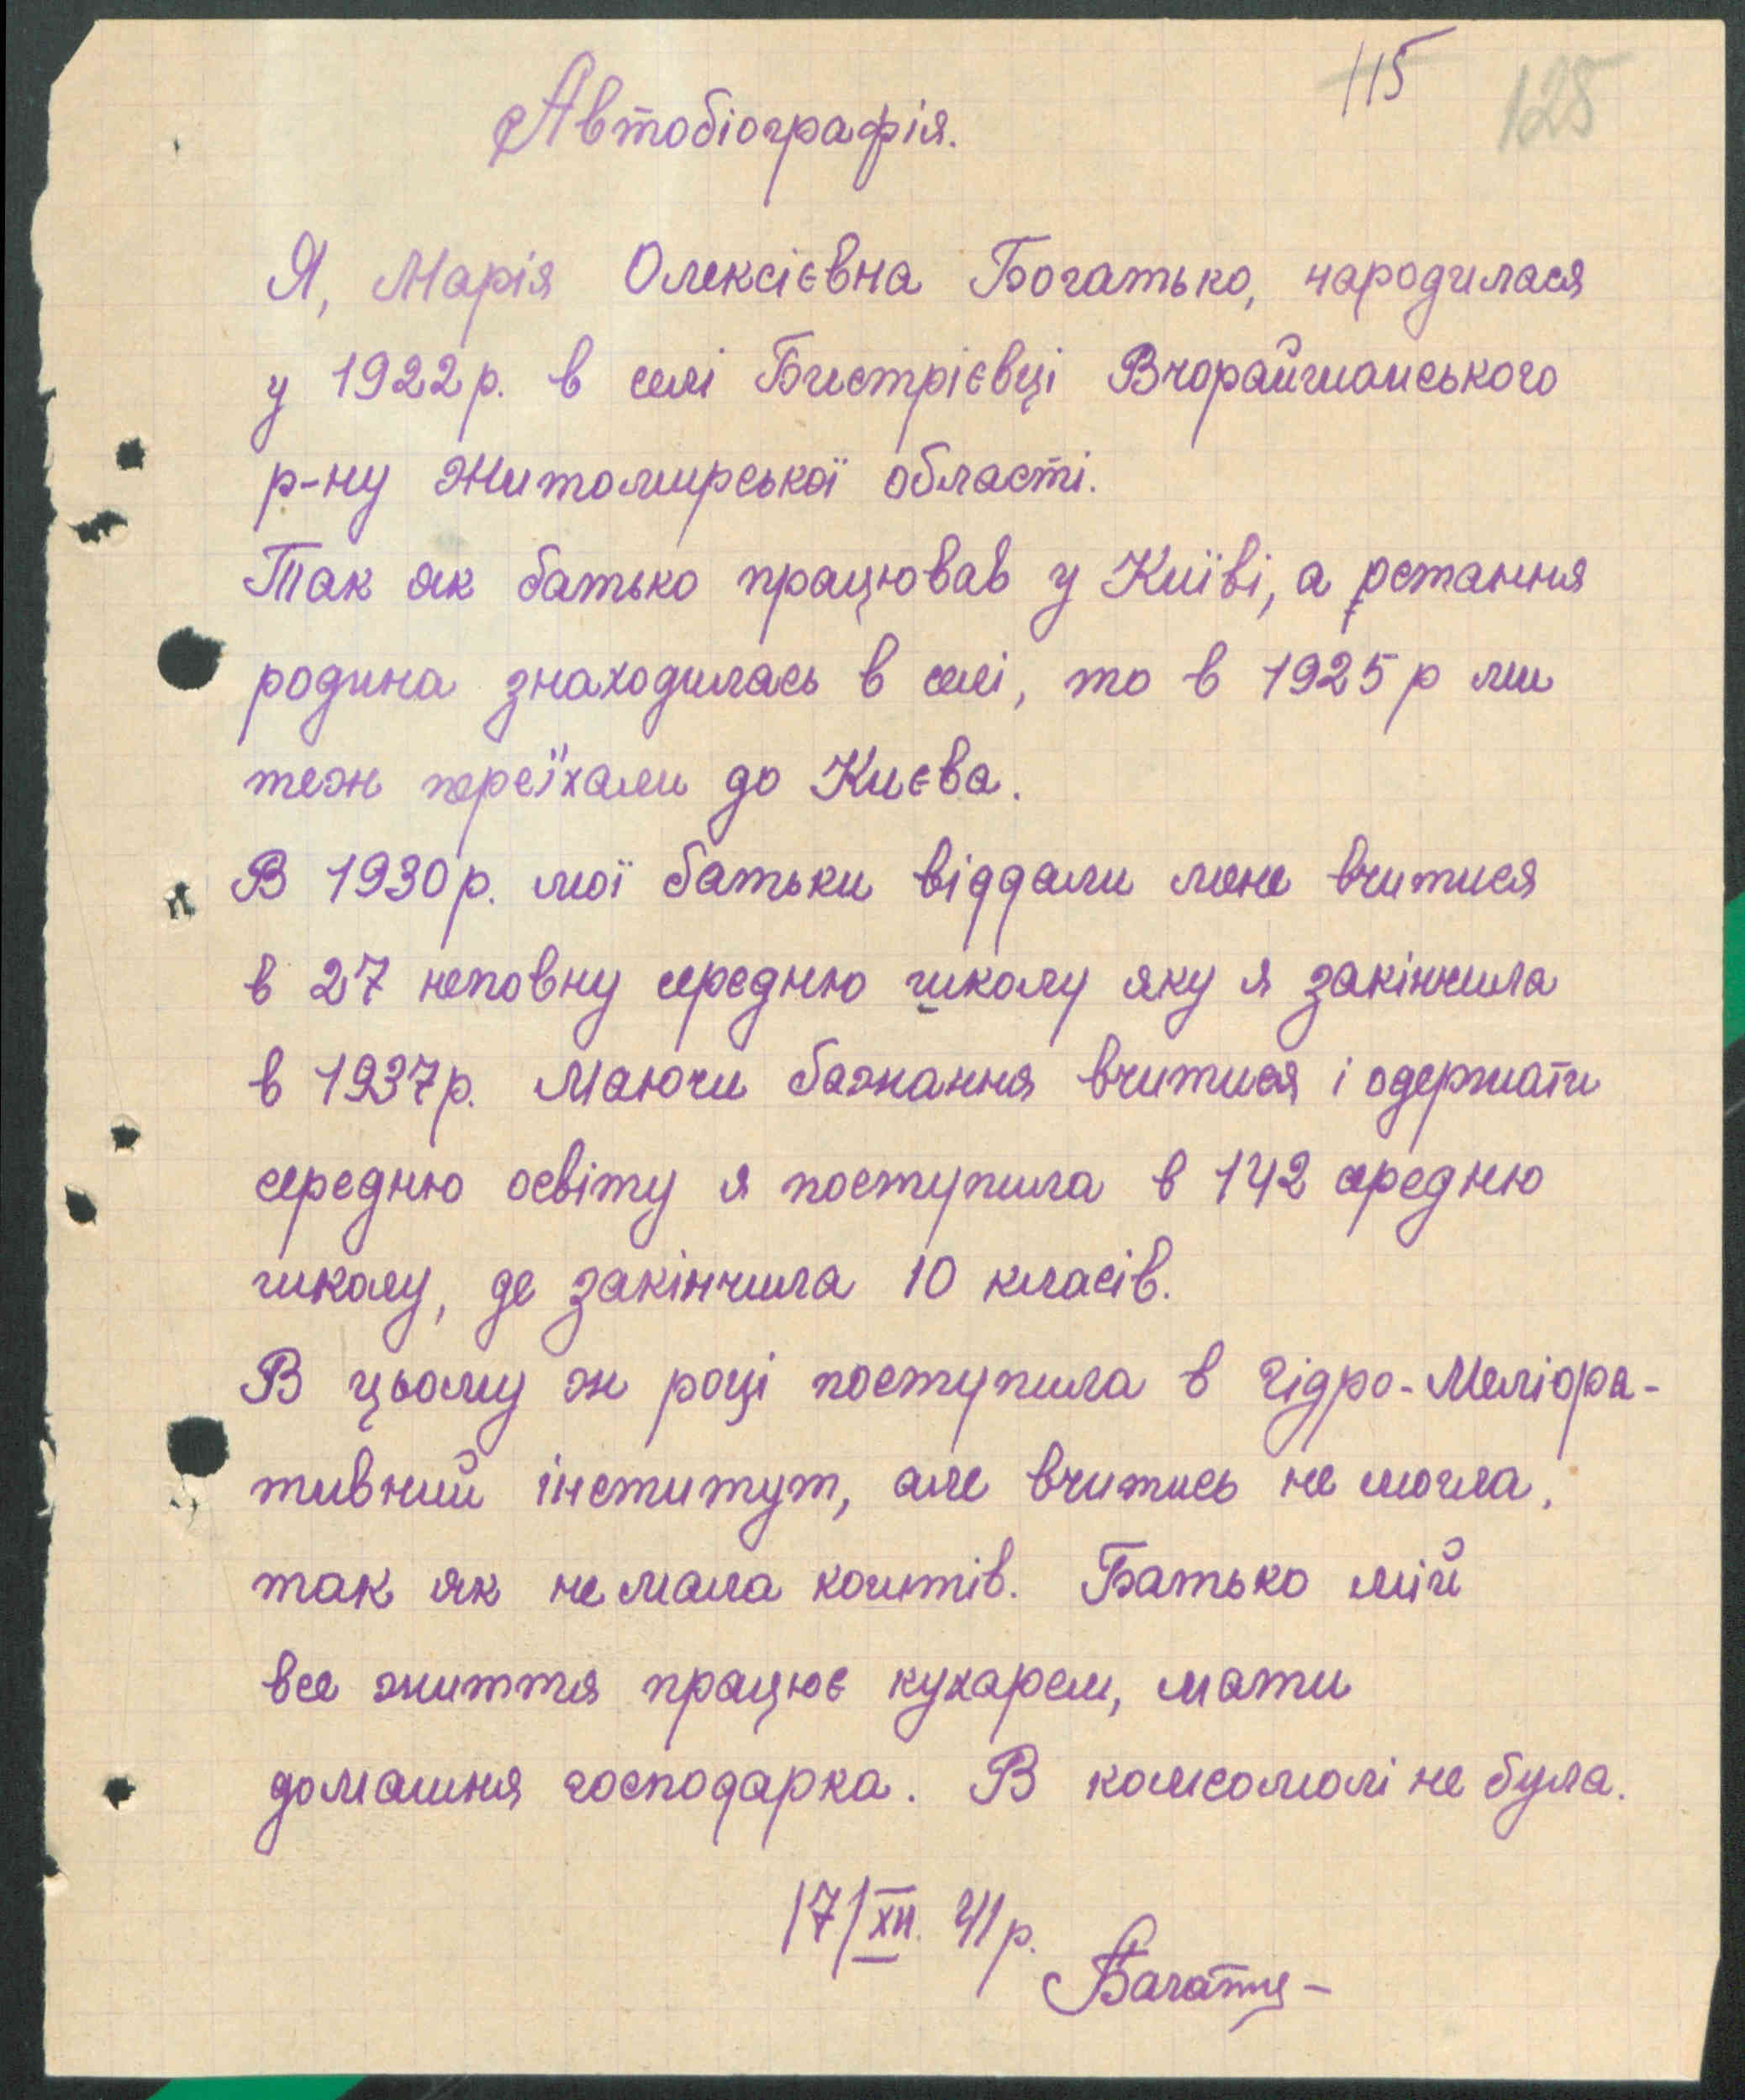 115 128
Автобіографія.
Я, Марія Олексієвна Богатько, народилася
у 1922 р. в селі Бистрієвці Вчорайшанського
р-ну Житомирської області.
Так як батько працював у Київі, а остання
родина знаходилась в селі, то в 1925 р ми
теж переїхали до Києва.
В 1930 р. мої батьки віддали мене вчитися
в 27 неповну середню школу яку я закінчила
в 1937 р. Маючи бажання вчитися і одержати
середню освіту я поступила в 142 середню
школу, де закінчила 10 класів.
В цьому ж році поступила в Гідро-Меліора-
тивний інститут, але вчитись не могла,
так як не мала коштів. Батько мій
все життя працює кухарем, мати
домашня господарка. В комсомолі не була.
17/XII. 41 р.